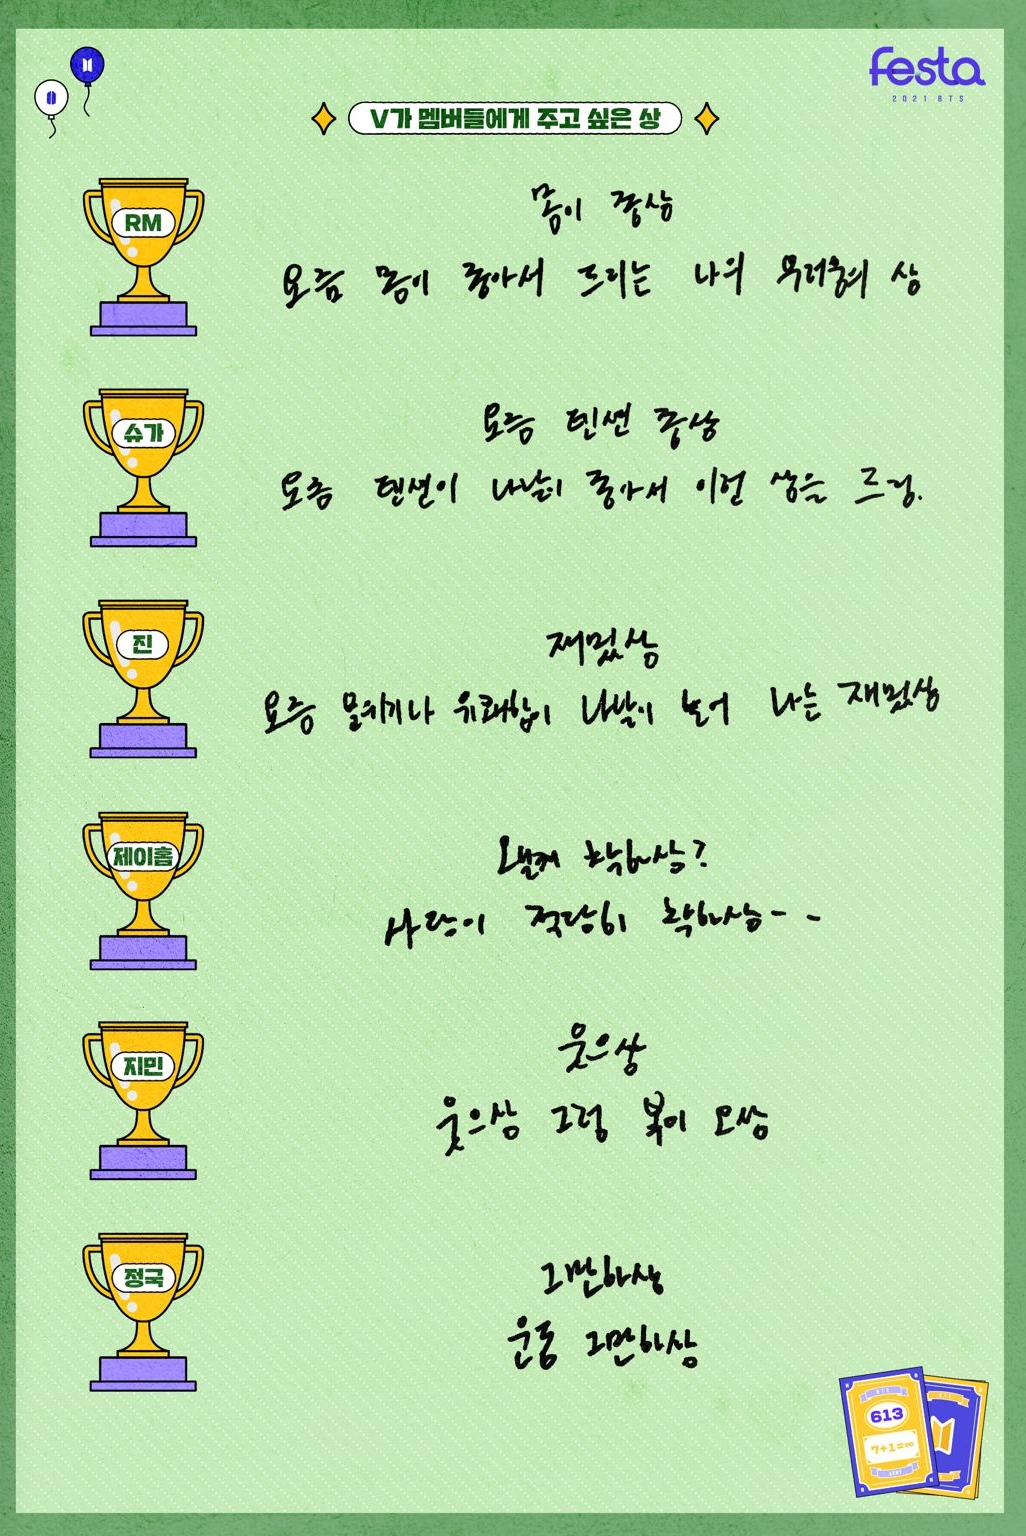 festa
2021 BTS
V가 멤버들에게 주고 싶은 상
RM
몸이 좋상
요즘 몸이 좋아서 드리는 나의 부러움의 상
슈가
요즘 텐션 좋상
요즘 텐션이 나날이 좋아서 이런 상을 드림.
진
재밌상
요즘 분위기나 유쾌함이 나날이 늘어 나는 재밌상
제이홉
왤케 착하상?
사람이 적당히 착하상--
지민
웃으상
웃으상 그럼 복이 오상
정국
그만하상
운동 그만하상
BTS
613
7+1=∞
ARMY